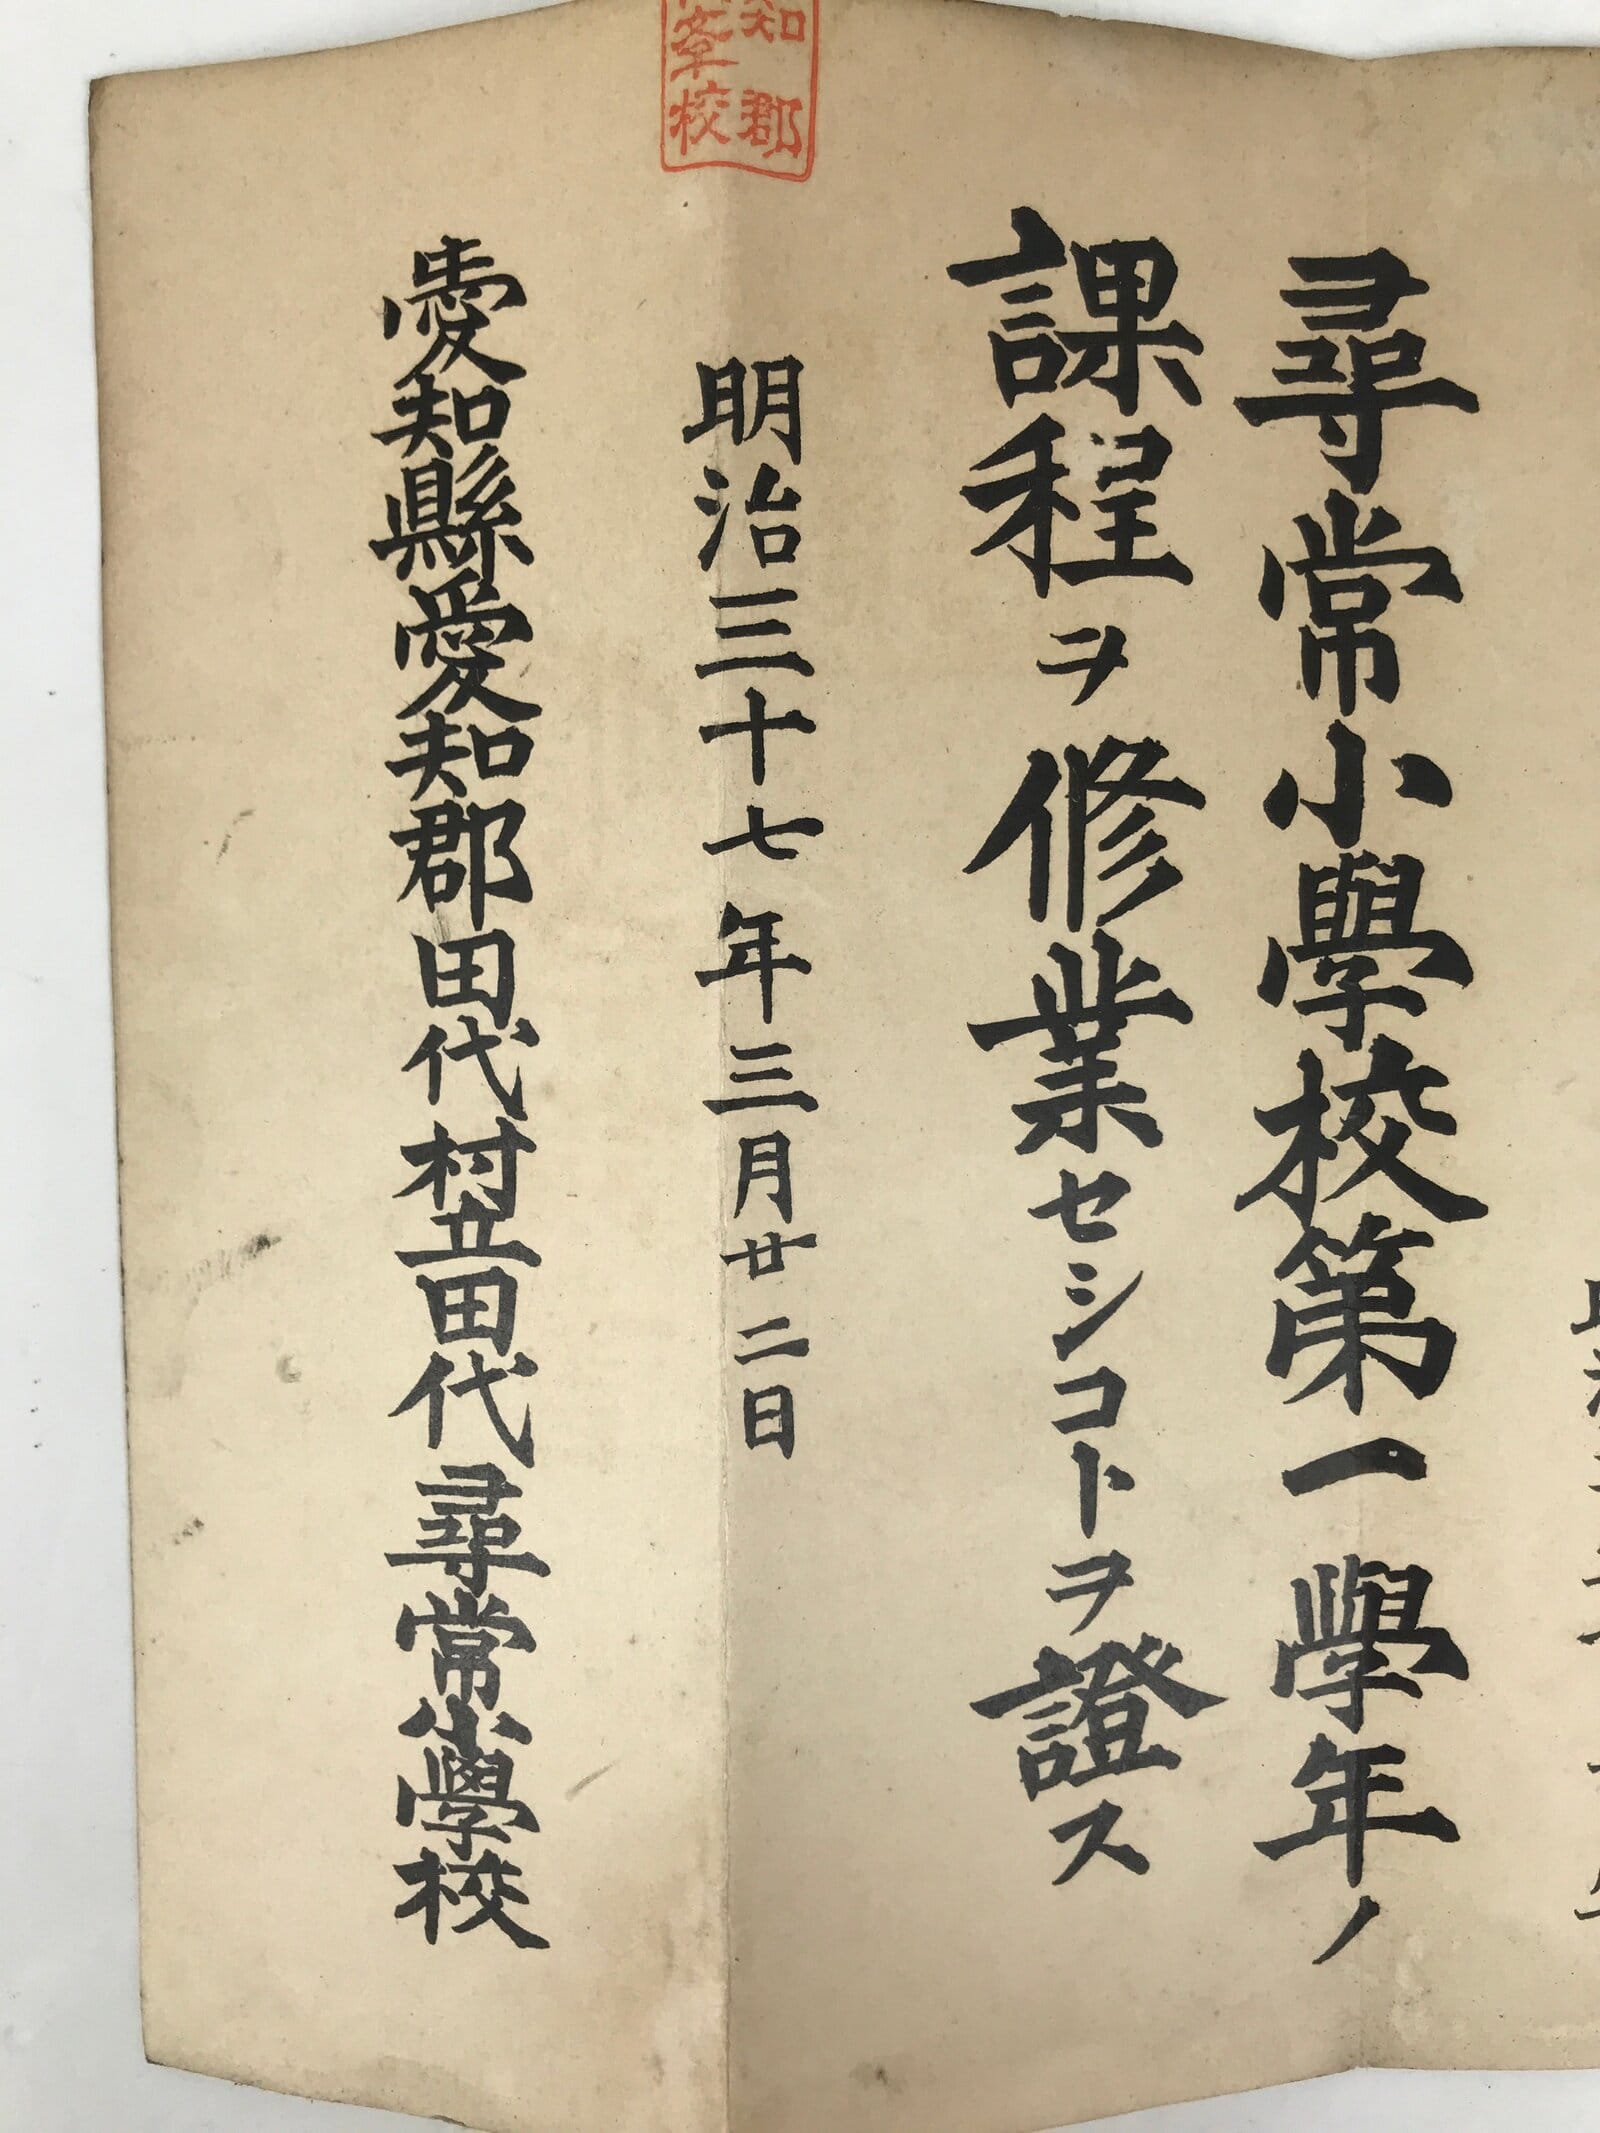 尋常小學校第一學年ノ
課程ヲ修業セシコトヲ證ス
明治三十七年三月廿二日
愛知縣愛知郡田代村立田代尋常小學校
知郡
校